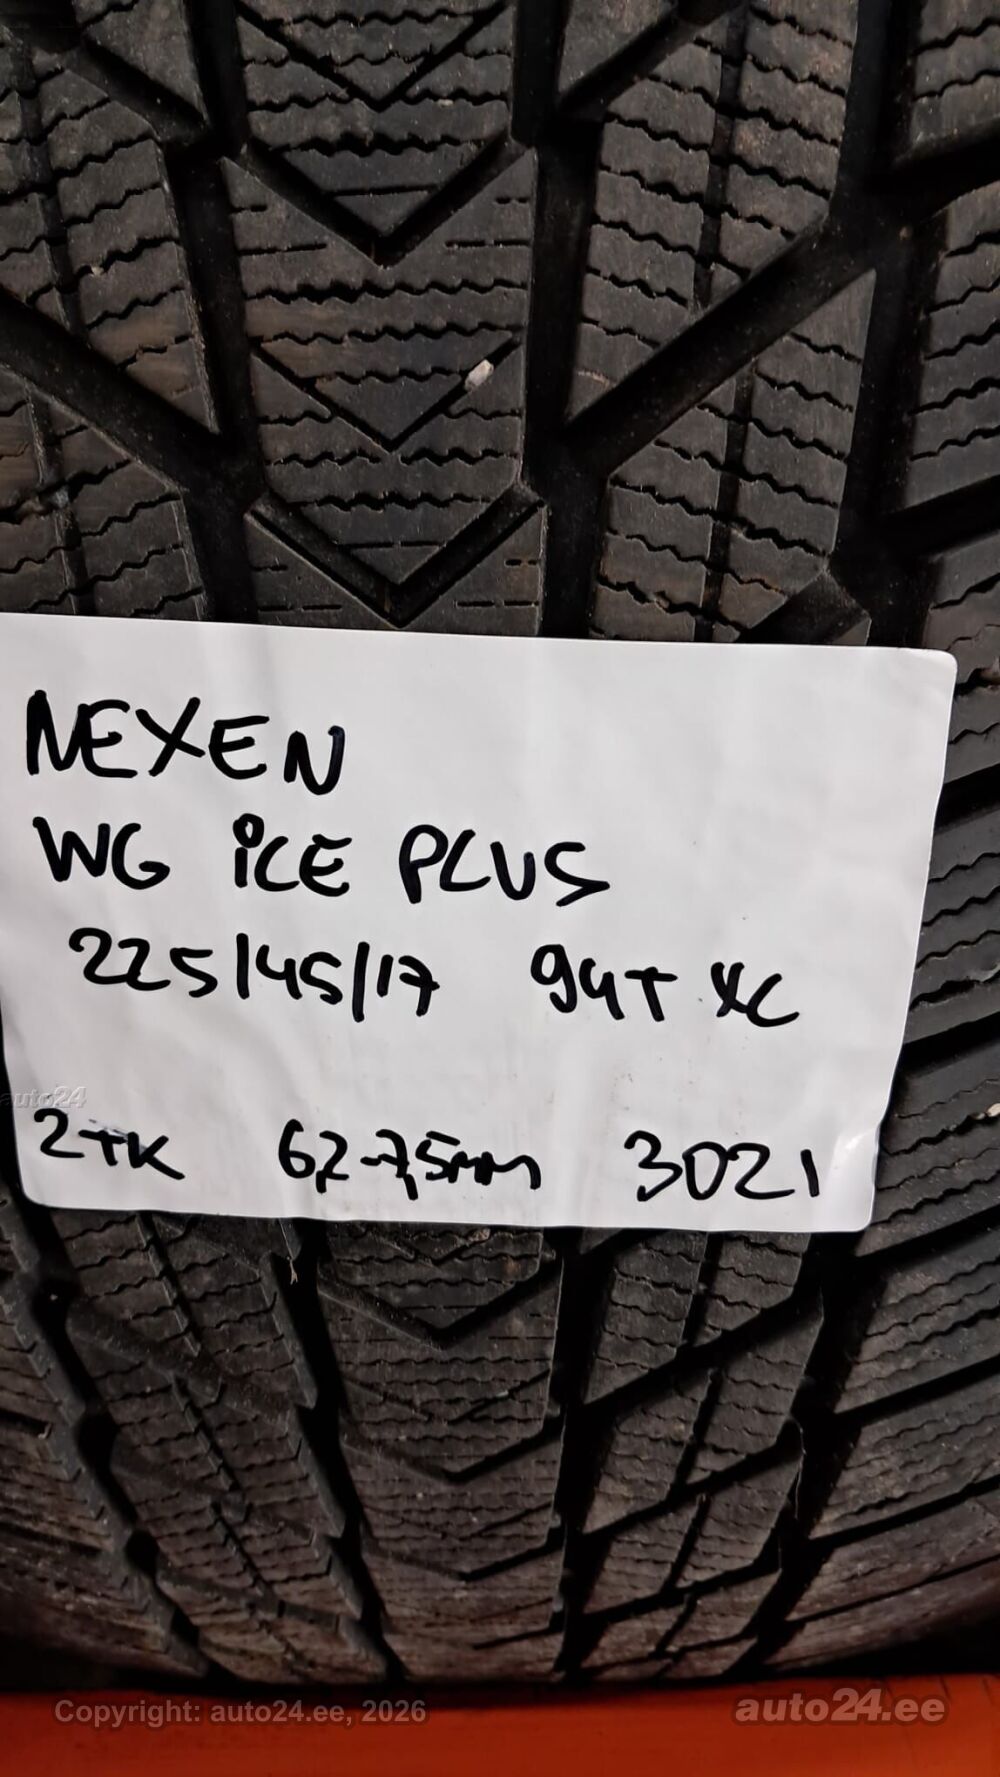 NEXEN
WG iCE PLUS
225/45/17 94T XL
auto24
2TK 6,2-7,5mm 3021
Copyright: auto24.ee, 2026
auto24.ee